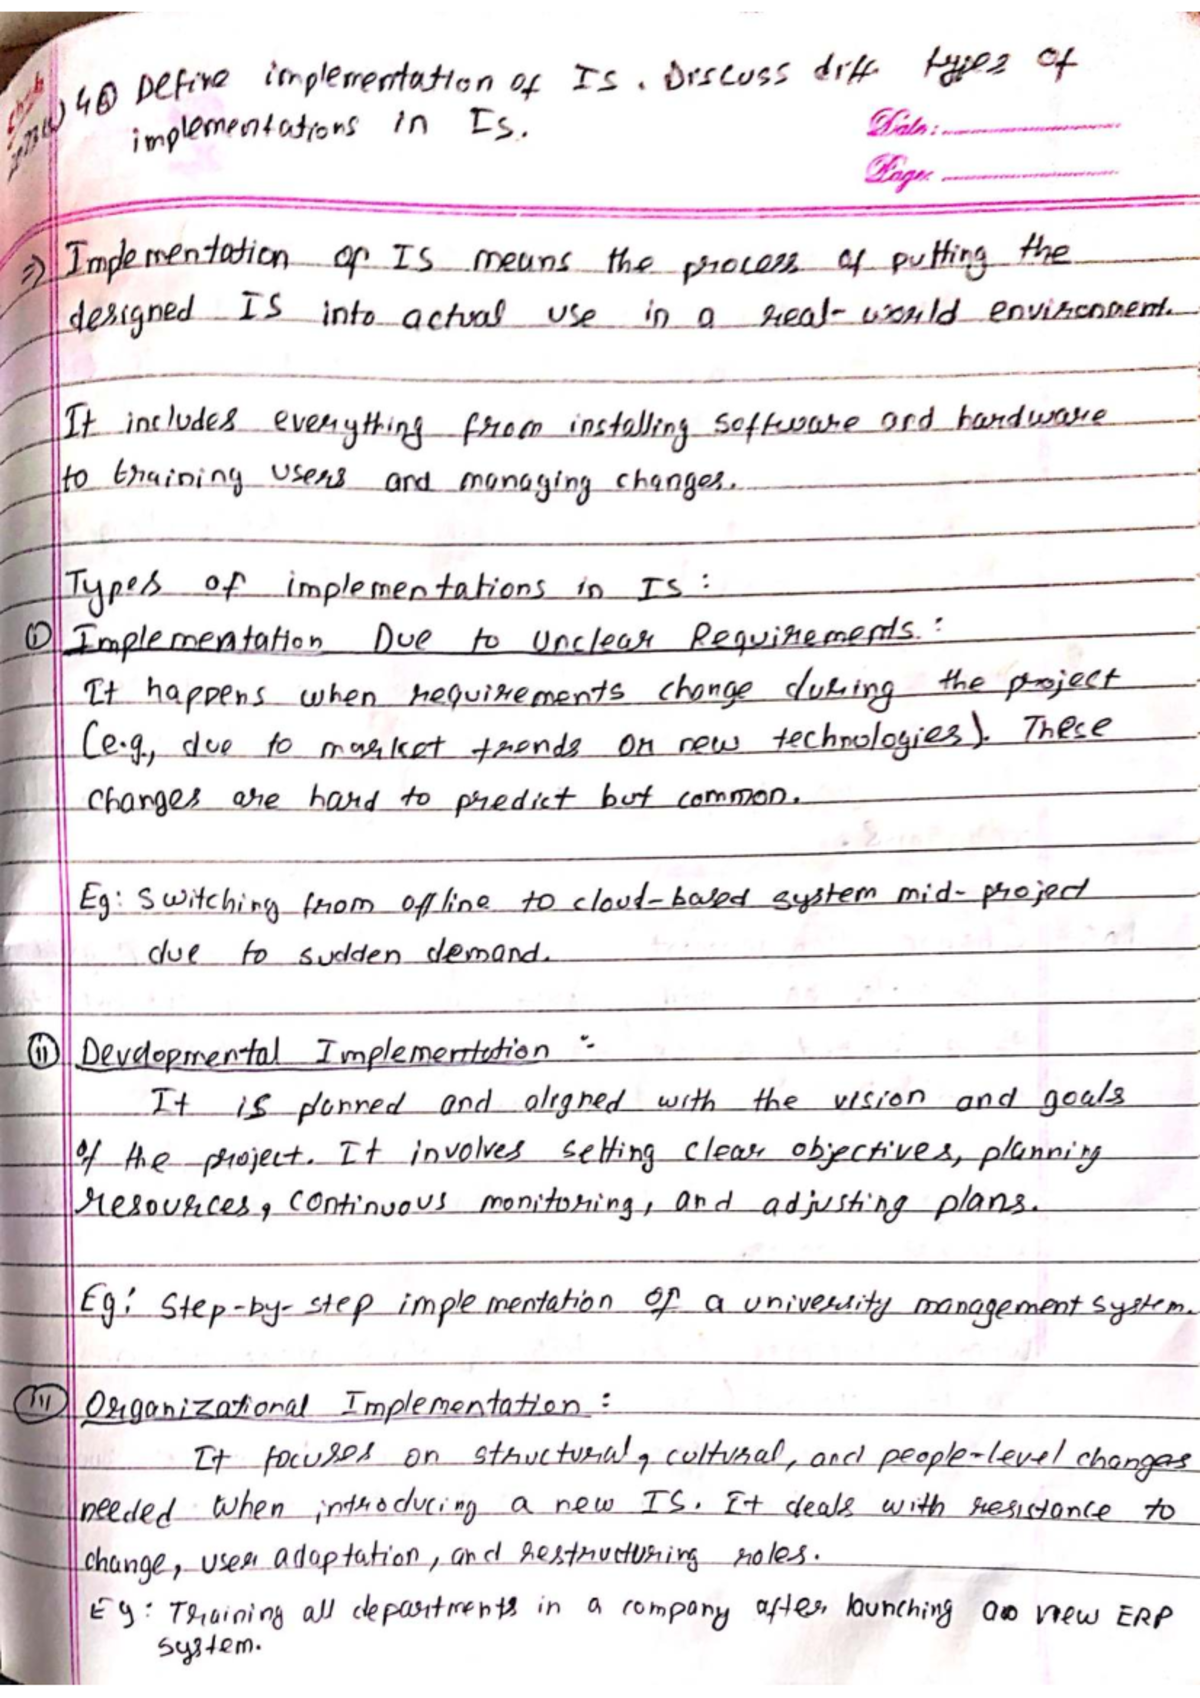 4a) Define implementation of IS. Discuss diff types of
implementations in IS.
Date:
Page:
=> Implementation of IS means the process of putting the
designed IS into actual use in a real-world environment.
It includes everything from installing software and hardware
to training users and managing changes.
Types of implementations in IS :
(i) Implementation Due to Unclear Requirements. :
It happens when requirements change during the project
(e.g., due to market trends or new technologies). These
changes are hard to predict but common.
Eg: Switching from offline to cloud-based system mid-project
due to sudden demand.
(ii) Developmental Implementation :-
It is planned and aligned with the vision and goals
of the project. It involves setting clear objectives, planning
resources, continuous monitoring, and adjusting plans.
Eg: Step-by-step implementation of a university management system.
(iii) Organizational Implementation :
It focuses on structural, cultural, and people-level changes
needed when introducing a new IS. It deals with resistance to
change, user adaptation, and restructuring roles.
Eg: Training all departments in a company after launching a new ERP
system.